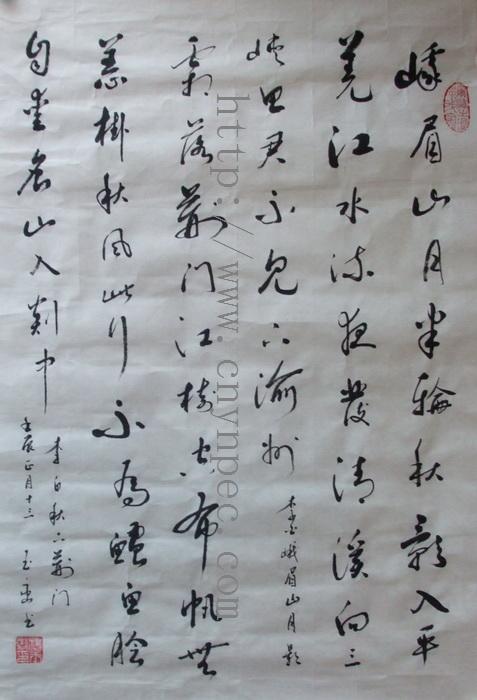 峨眉山月半輪秋影入平
羌江水流夜發清溪向三
峡思君不见下渝州
李白峨眉山月影
霜落荆门江樹空布帆無
恙掛秋风此行不为鲈鱼脍
自爱名山入剡中
李白秋下荆门
壬辰正月十三 玉 书
http://www.cnynpec.com